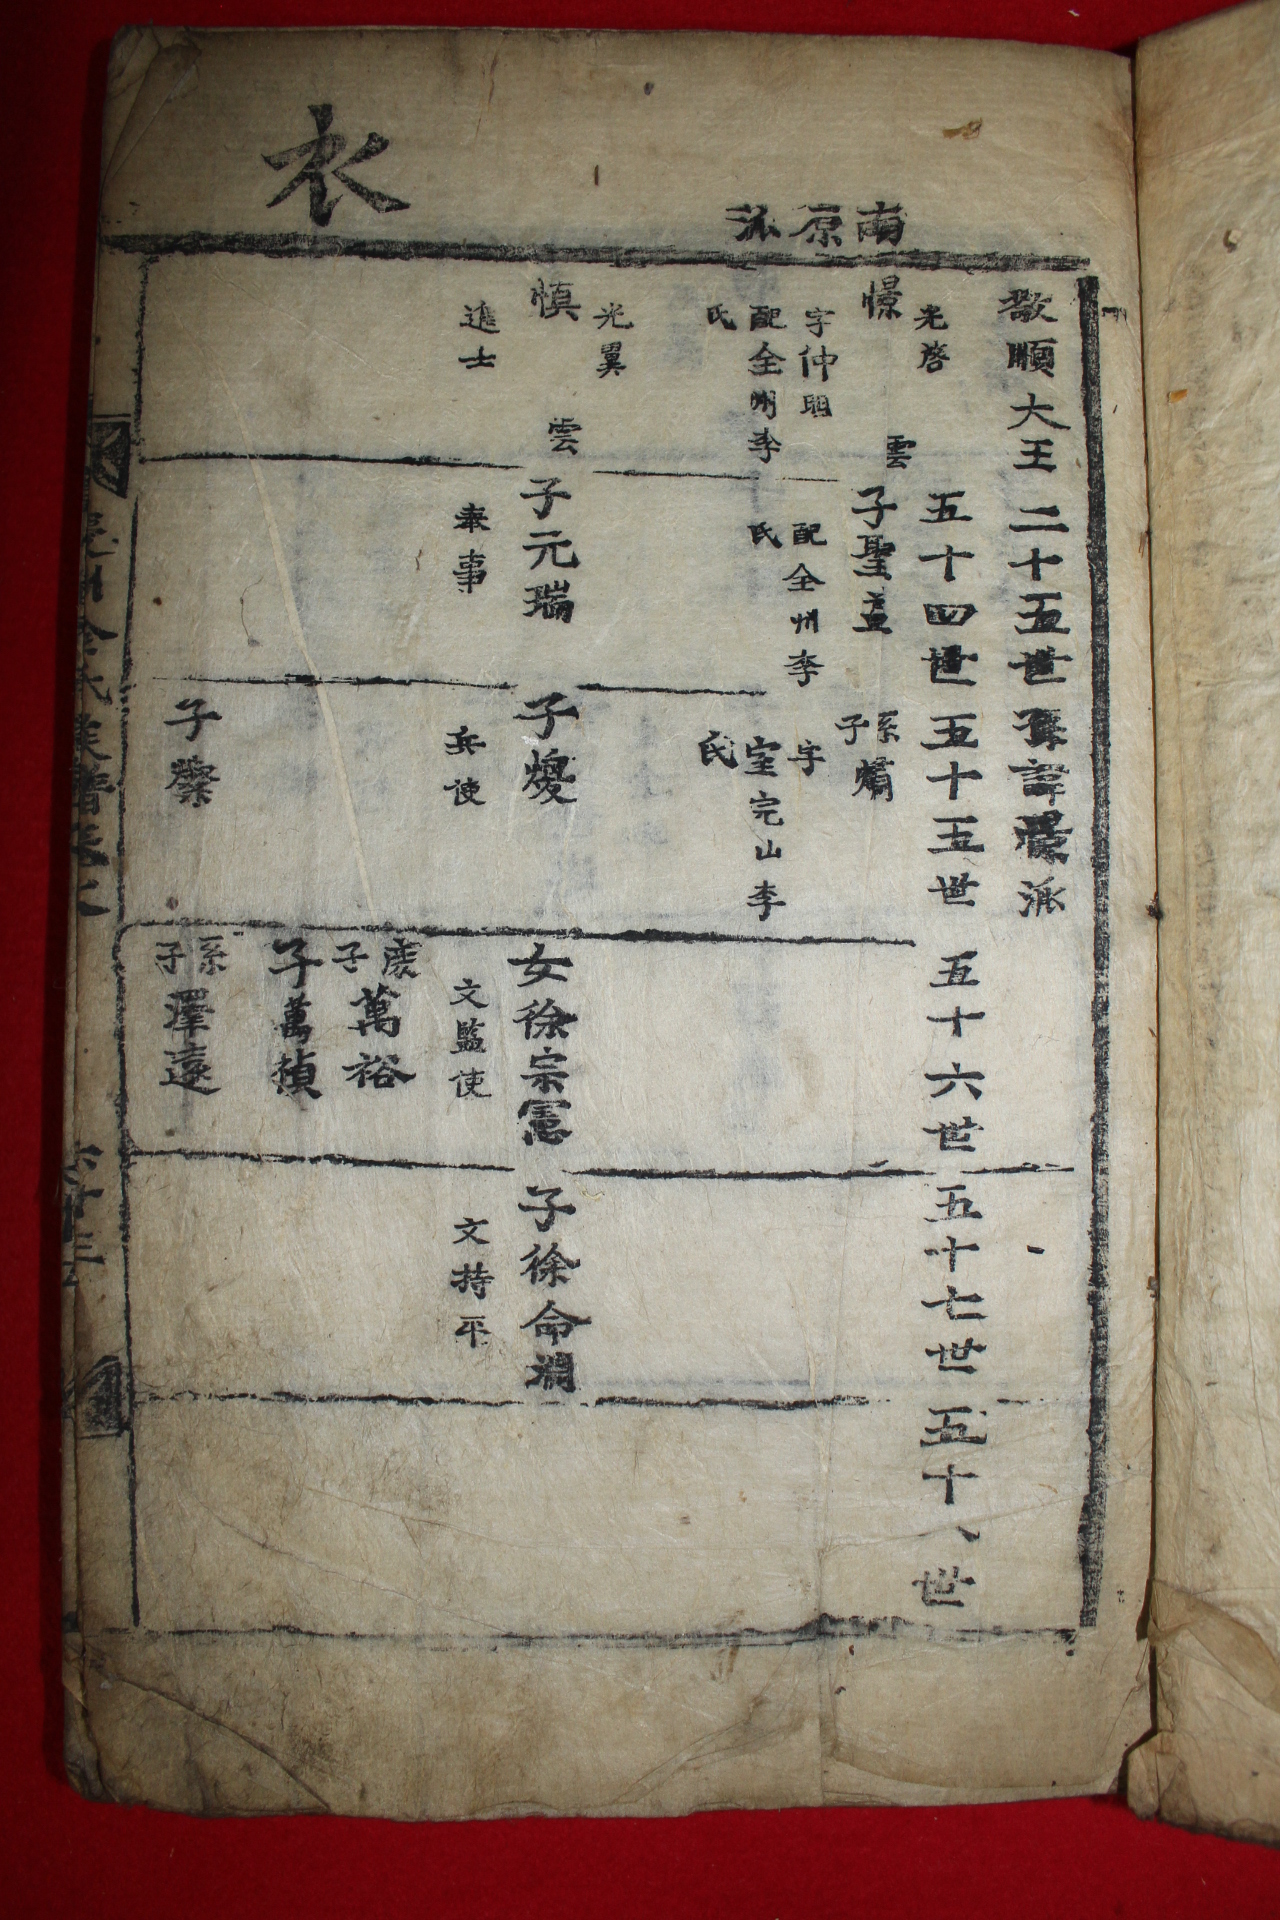 衣
南原派
敬順大王二十五世孫諱憬派
五十四世
五十五世
五十六世
五十七世
五十八世
光啓
憬
雲
字仲明
配全州李
氏
子聖益
配全州李
氏
系
子
孫
字
室完山李
氏
光翼
慎
雲
進士
子元瑞
奉事
子㷼
兵使
女徐宗憲
文監使
子徐命淵
文持平
庶
子
萬裕
子萬禎
子
系
子
澤遠
金氏族譜卷之
六十三